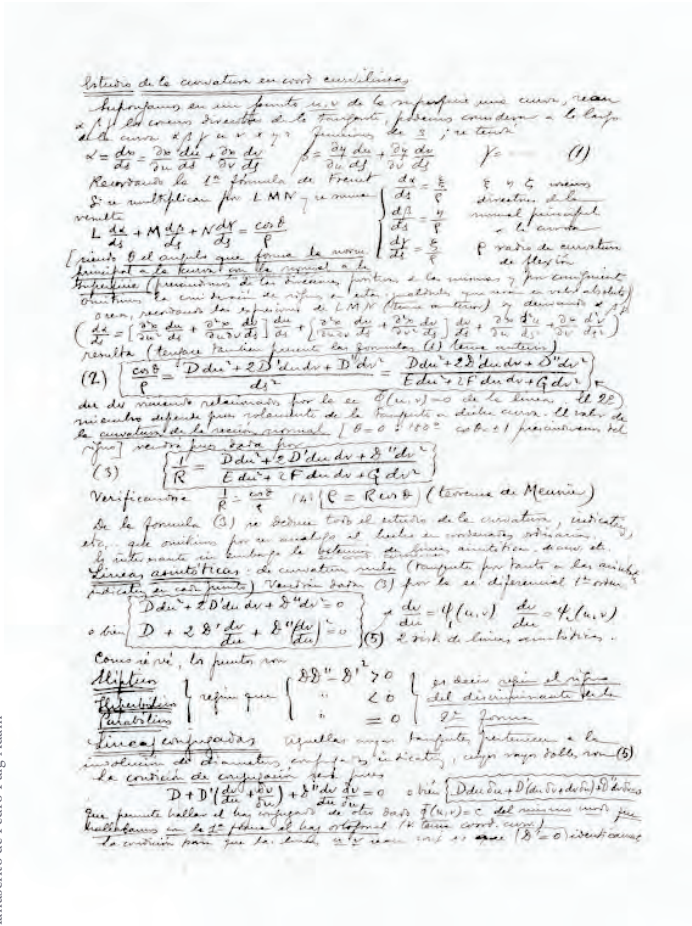 Estudio de la curvatura en coord curvilíneas
Supongamos en un punto u, v de la superficie una curva, sean
α β γ los cosenos directores de la tangente, podemos considerar a lo largo
de la curva α β γ u v x y z funciones de s ; se tendrá
α = dx/ds = ∂x/∂u du/ds + ∂x/∂v dv/ds β = ∂y/∂u du/ds + ∂y/∂v dv/ds γ = ...... (1)
Recordando la 1ª fórmula de Frenet
dα/ds = ξ/ρ ξ η ζ cosenos
Si se multiplican por L M N y se suman directores de la
resulta dβ/ds = η/ρ normal principal
L dα/ds + M dβ/ds + N dγ/ds = cosθ/ρ a la curva
dγ/ds = ζ/ρ ρ radio de curvatura
[siendo θ el angulo que forma la normal de flexión
principal a la curva con la normal a la
superficie (prescindimos de las direcciones positivas de las mismas y por consiguiente
omitimos la consideración de signos en estas igualdades que serán en valor absoluto)
o sea, recordando las expresiones de L M N (tema anterior) y derivando α β γ
(dα/ds = [∂²x/∂u² du/ds + ∂²x/∂u∂v dv/ds] du/ds + [∂²x/∂u∂v du/ds + ∂²x/∂v² dv/ds] dv/ds + ∂x/∂u d²u/ds² + ∂x/∂v d²v/ds²)
resulta (téngase también presente las formulas (1) tema anterior)
(2) cosθ/ρ = D du² + 2D' du dv + D'' dv² / ds² = D du² + 2D' du dv + D'' dv² / E du² + 2F du dv + G dv²
du dv viniendo relacionados por la ec Φ(u,v)=0 de la linea. El 2º
miembro depende pues solamente de la tangente a dicha curva. El valor de
la curvatura de la sección normal [θ = 0 ó 180º cosθ = ±1 prescindiremos del
signo] vendrá pues dada por
(3) 1/R = D du² + 2D' du dv + D'' dv² / E du² + 2F du dv + G dv²
Verificandose 1/R = cosθ/ρ (4) ρ = R cosθ (teorema de Meunier)
De la formula (3) se deduce todo el estudio de la curvatura, indicatriz,
etc. que omitimos por ser analogo al hecho en coordenadas ordinarias.
Es interesante sin embargo los sistemas de lineas asintóticas
Lineas asintóticas - de curvatura nula (tangente por tanto a las
indicatriz en cada punto) vendrán dadas (3) por la ec. diferencial 1er orden
D du² + 2D' du dv + D'' dv² = 0
o bien D + 2D' dv/du + D'' (dv/du)² = 0 (5) dv/du = φ₁(u,v) dv/du = φ₂(u,v)
2 sist. de lineas asintóticas.
Como se vé, los puntos son
Elípticos DD'' - D'² > 0 es decir según el signo
Hiperbólicos según que " < 0 del discriminante de la
Parabólicos " = 0 2ª forma
Lineas conjugadas aquellas cuyas tangentes pertenecen a la
involución de diametros conjugados indicatriz, cuyos rayos dobles son (5).
La condición de conjugación será pues
D + D' (dv/du + δv/δu) + D'' dv/du δv/δu = 0 o bien D du δu + D' (du δv + dv δu) + D'' dv δv = 0
Que permite hallar el haz conjugado de otro dado F(u,v) = c del mismo modo que
hallabamos en la 1ª forma el haz ortogonal (V. tema coord. curv.)
La condición para que las lineas u v sean conj es que (D' = 0) identicamente
Manuscrito de Pedro Puig Adam